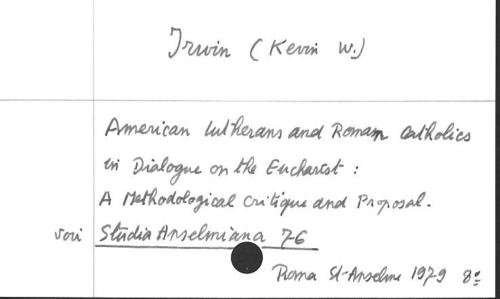 Irwin (Kevin W.)
American Lutherans and Roman Catholics
in Dialogue on the Eucharist :
A Methodological Critique and Proposal.
voir Studia Anselmiana 76
Roma St-Anselme 1979 8º